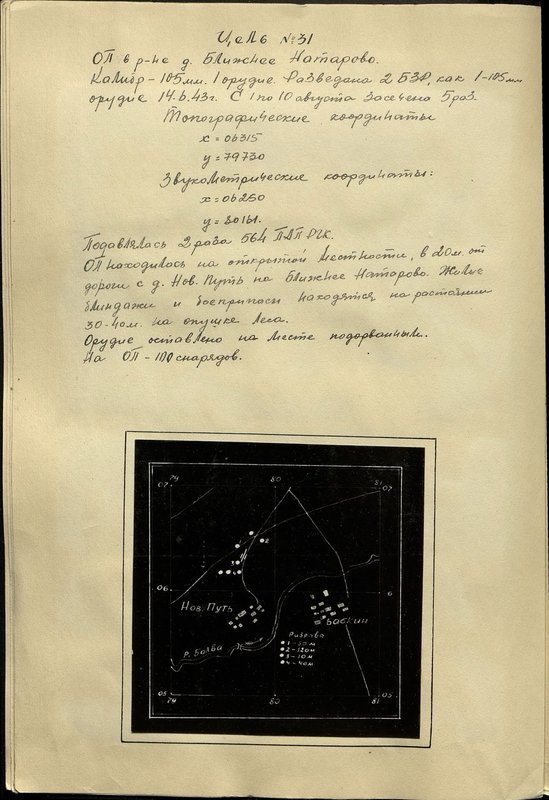 Цель №31
ОП в р-не д. Ближнее Натарово.
Калибр - 105 мм. 1 орудие. Разведана 2 БЗР, как 1-105 мм
орудие 14.6.43г. С 1 по 10 августа засечена 5 раз.
Топографические координаты
x = 06315
y = 79730
Звукометрические координаты:
x = 06250
y = 80161.
Подавлялась 2 раза 564 ПАП РГК.
ОП находилась на открытой местности, в 20м. от
дороги с д. Нов. Путь на Ближнее Натарово. Жилые
блиндажи и боеприпасы находятся на расстоянии
30-40м. на опушке леса.
Орудие оставлено на месте подорванным.
На ОП - 100 снарядов.
79 80 81
07 07
2
3
06 6
Нов. Путь
Баскин
Р. Болва
1 - 50 м
2 - 120 м
3 - 10 м
4 - 40 м
05 05
79 80 81